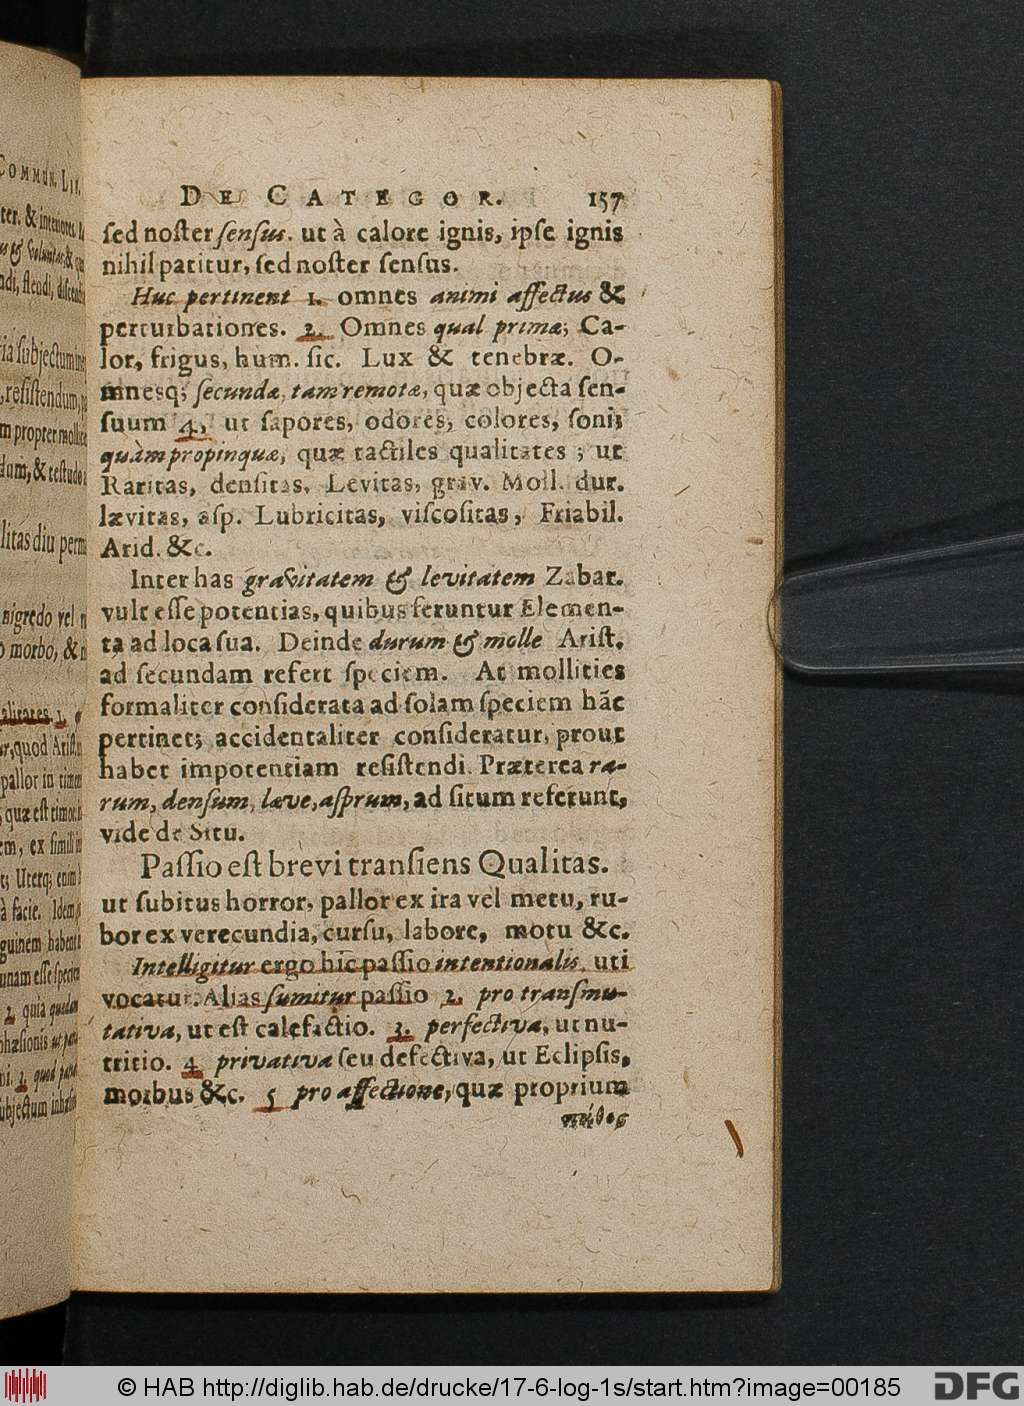 DE CATEGOR. 157
ſed noſter ſenſus. ut à calore ignis, ipſe ignis
nihil patitur, ſed noſter ſenſus.
Huc pertinent 1. omnes animi affectus &
perturbationes. 2. Omnes qual primæ; Ca-
lor, frigus, hum. ſic. Lux & tenebræ. O-
mnesq; ſecundæ, tam remotæ, quæ objecta ſen-
ſuum 4, ut ſapores, odores, colores, ſoni;
quàm propinquæ, quæ tactiles qualitates; ut
Raritas, denſitas, Levitas, grav. Moll. dur.
lævitas, aſp. Lubricitas, viſcoſitas, Friabil.
Arid. &c.
Inter has gravitatem & levitatem Zabar.
vult eſſe potentias, quibus feruntur Elemen-
ta ad loca ſua. Deinde durum & molle Ariſt.
ad ſecundam refert ſpeciem. At mollities
formaliter conſiderata ad ſolam ſpeciem hãc
pertinet; accidentaliter conſideratur, prout
habet impotentiam reſiſtendi. Præterea ra-
rum, denſum, læve, aſprum, ad ſitum referunt,
vide de Situ.
Paſſio eſt brevi tranſiens Qualitas.
ut ſubitus horror, pallor ex ira vel metu, ru-
bor ex verecundia, curſu, labore, motu &c.
Intelligitur ergo hic paſſio intentionalis, uti
vocatur. Alias ſumitur paſſio 2. pro tranſmu-
tativa, ut eſt calefactio. 3. perfectiva, ut nu-
tritio. 4 privativa ſeu defectiva, ut Eclipſis,
morbus &c. 5 pro affectione, quæ proprium
πάθος
© HAB http://diglib.hab.de/drucke/17-6-log-1s/start.htm?image=00185
DFG